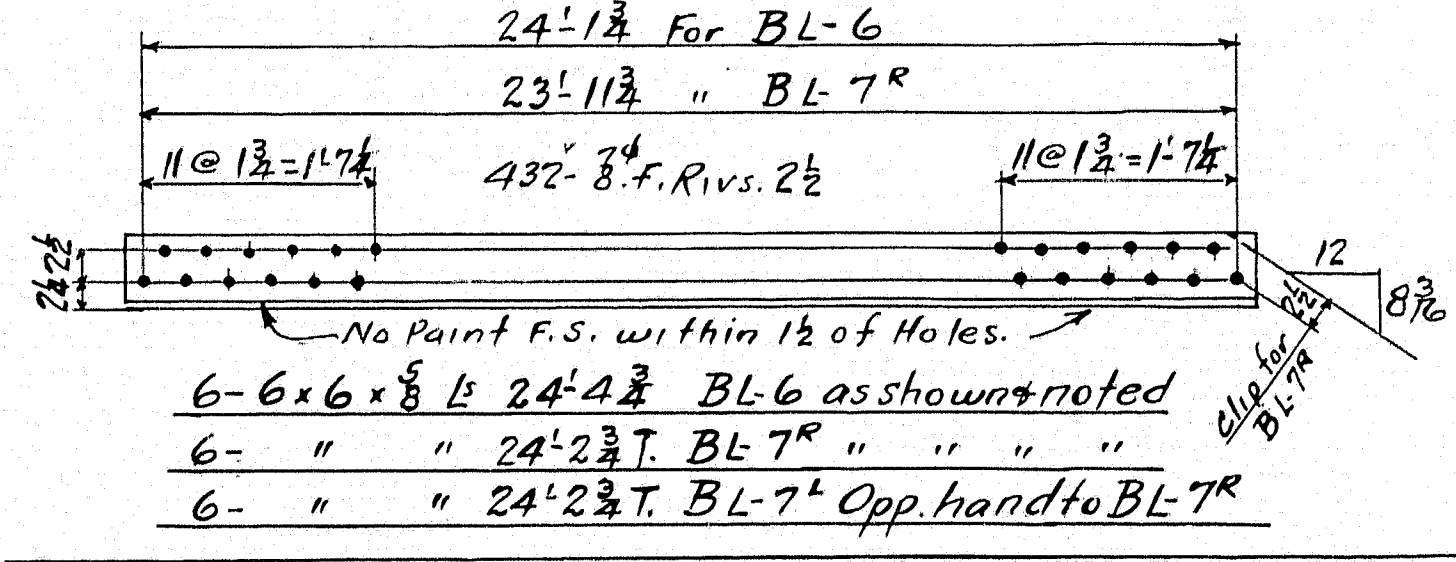 24'-1 3/4 For BL-6
23'-11 3/4 " BL-7R
11 @ 1 3/4 = 1'-7 1/4
432- 7/8 φ.F. Rivs. 2 1/2
11 @ 1 3/4 = 1'-7 1/4
2 1/2
2 1/4
12
8 3/16
2 1/2
Clip for
BL-7R
No Paint F.S. within 1 1/2 of Holes.
6- 6 x 6 x 5/8 Ls 24'-4 3/4 BL-6 as shown & noted
6- " " 24'-2 3/4 T. BL-7R " " " "
6- " " 24'-2 3/4 T. BL-7L Opp. hand to BL-7R